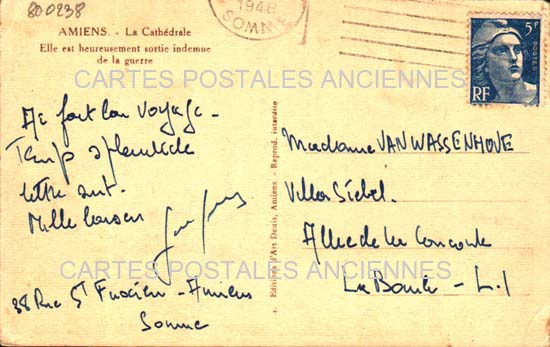 800238
1948
SOMME
5F
POSTES
RF
AMIENS. - La Cathédrale
Elle est heureusement sortie indemne
de la guerre
CARTES POSTALES ANCIENNES
Ai fait bon voyage -
Temps splendide
lettre suit.
Mille baisers
38 Rue St Fuscien - Amiens
Somme
4. Editions d'Art Denis, Amiens - Reprod. interdite
Madame VANWASSENHOVE
Villa
Allée de la Concorde
La Baule - L.I
CARTES POSTALES ANCIENNES